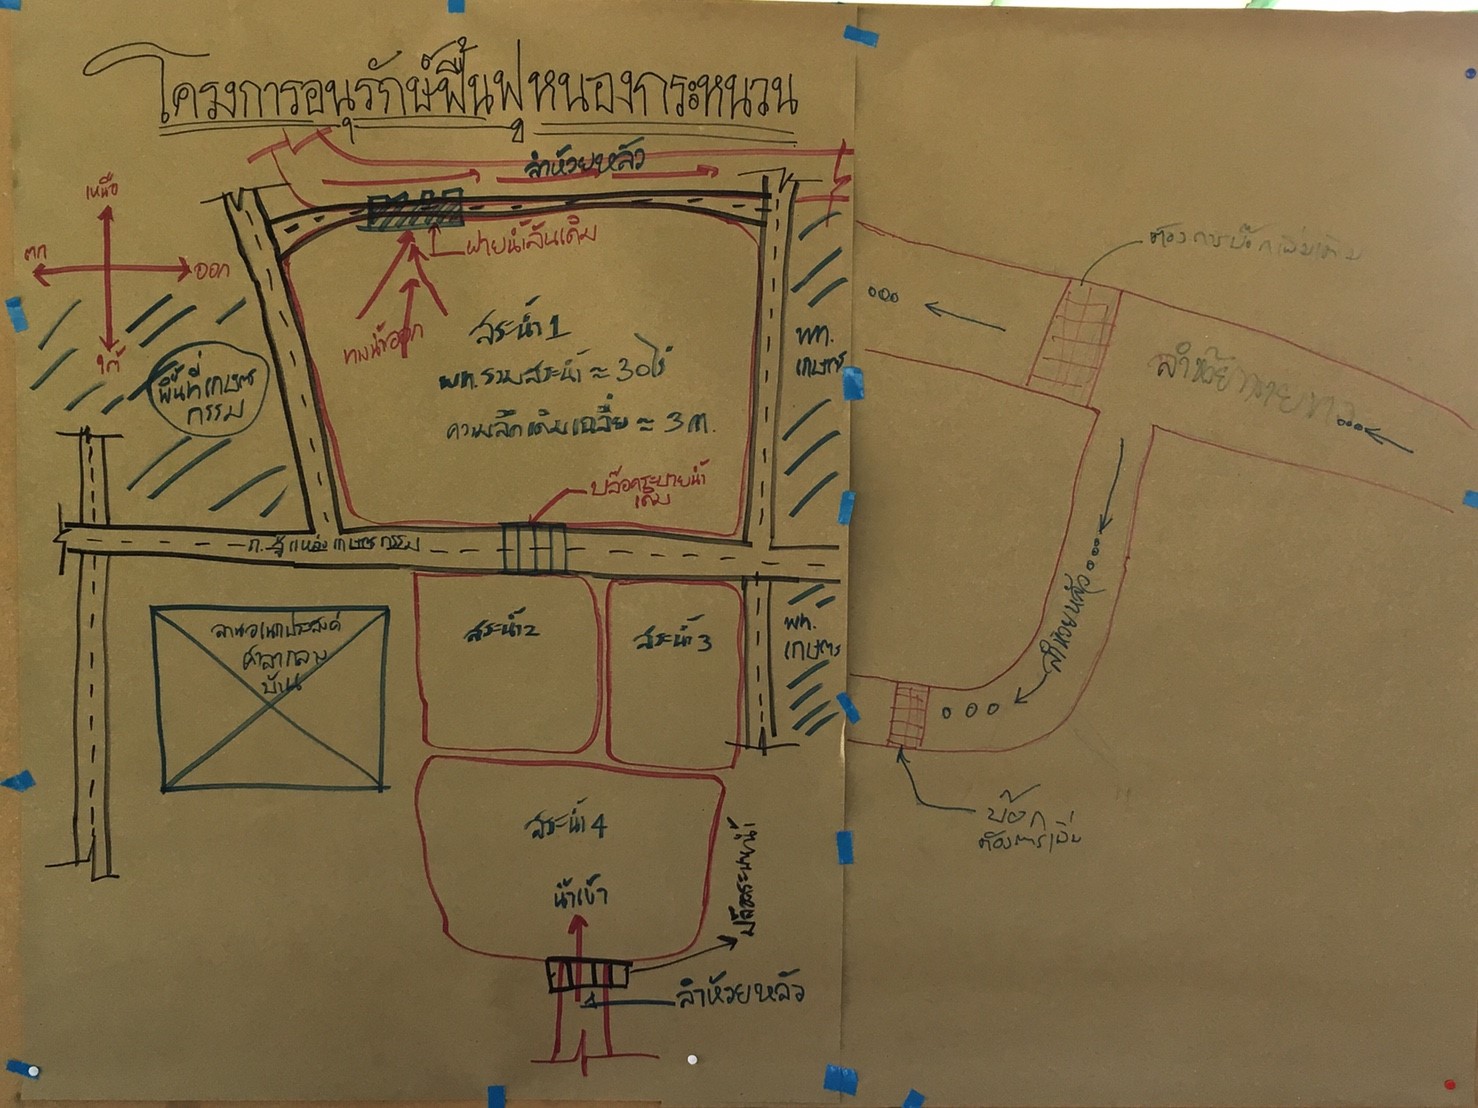 โครงการอนุรักษ์ฟื้นฟูหนองกระหนวน
ลำห้วยหลัว
เหนือ
ตก
ออก
ใต้
ฝายน้ำล้นเดิม
ทางน้ำออก
สระน้ำ 1
พท.รวมสระน้ำ ≈ 30ไร่
ความลึกเดิมเฉลี่ย ≈ 3 m.
พื้นที่เกษตร
กรรม
พท.
เกษตร
บล๊อคระบายน้ำ
เดิม
ถ.สู่แหล่งเกษตรกรรม
ลานอเนกประสงค์
ศาลากลาง
บ้าน
สระน้ำ2
สระน้ำ 3
พท.
เกษตร
สระน้ำ 4
น้ำเข้า
บล๊อคระบายน้ำ
ลำห้วยหลัว
ต้องการบ๊อกเพิ่มเติม
ลำห้วย
ลำห้วยหลัว
บ๊อก
ต้องการเพิ่ม